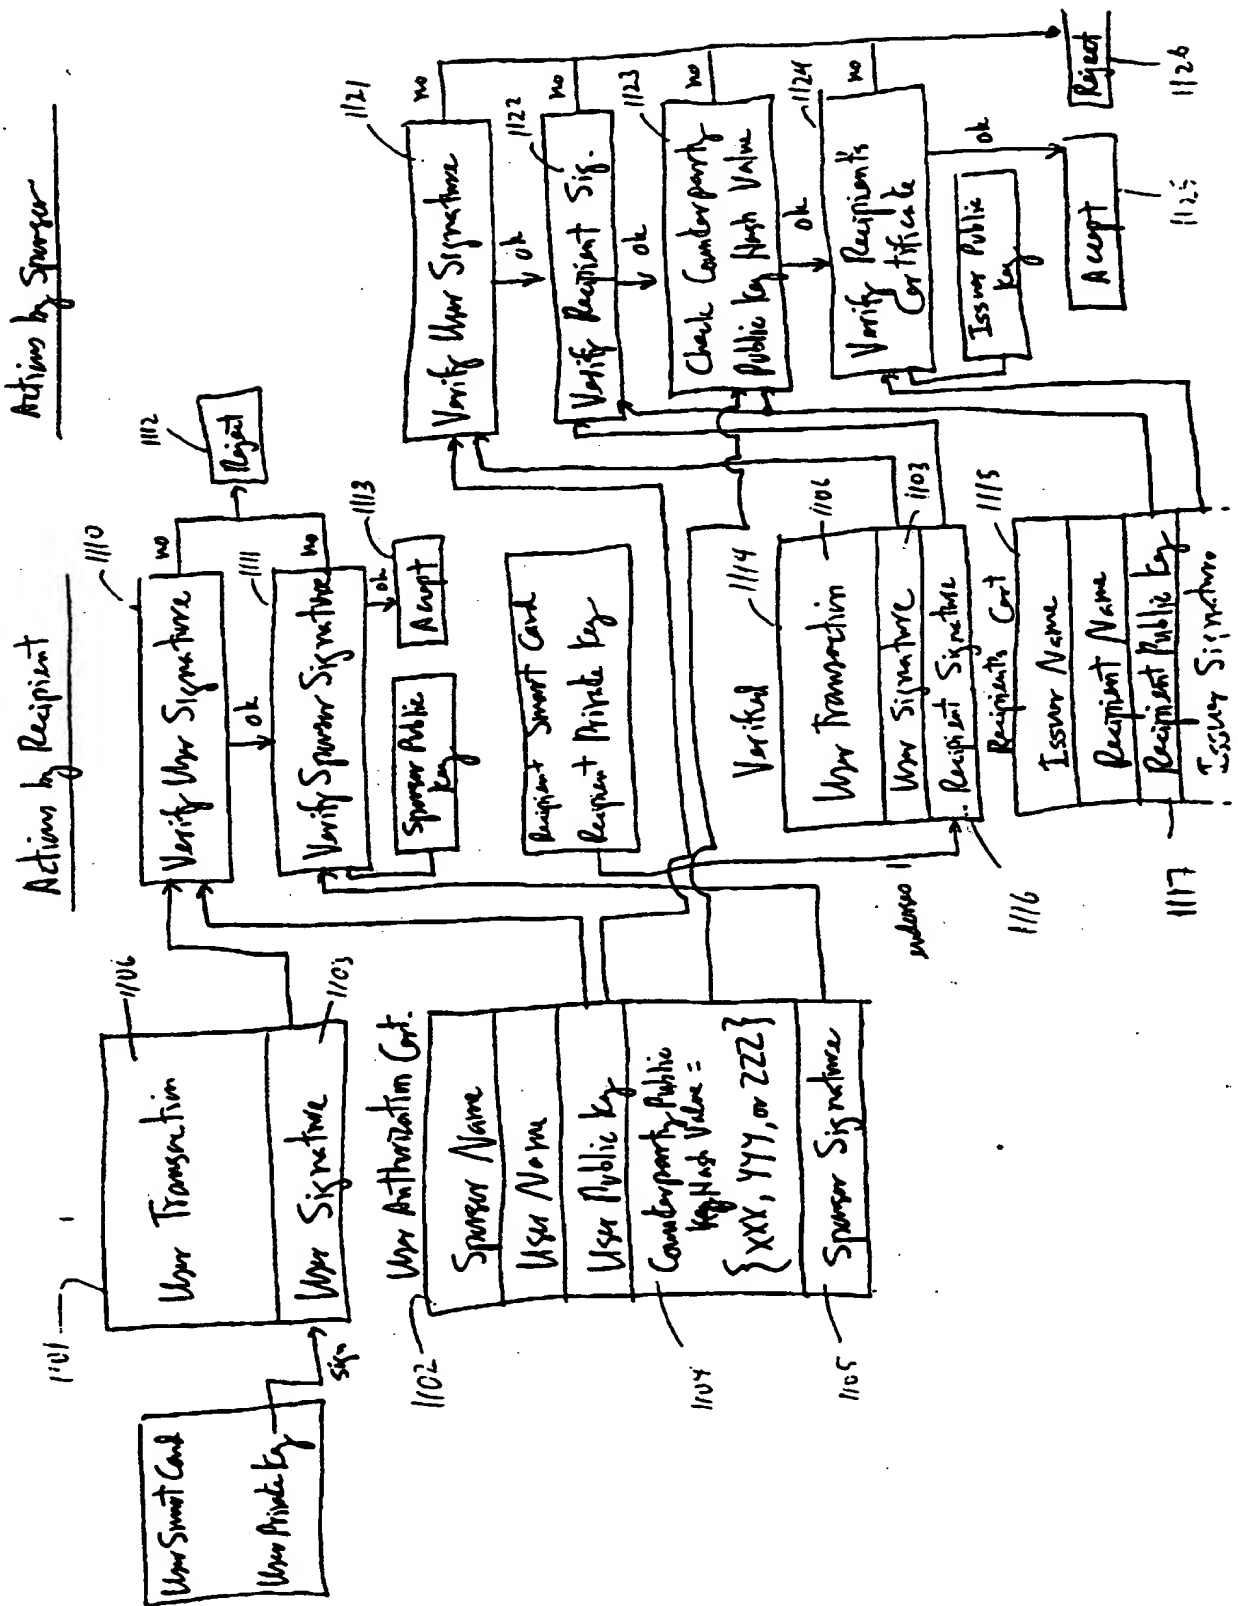 User Smart Card
User Private Key
sign
1101
User Transaction
1106
User Signature
1103
User Authorization Cert.
1102
Sponsor Name
User Name
User Public Key
Counterparty Public
Key Hash Value =
{XXX, YYY, or ZZZ}
1104
Sponsor Signature
1105
Actions by Recipient
1110
Verify User Signature
no
ok
1111
Verify Sponsor Signature
no
1112
Reject
ok
1113
Accept
Sponsor Public
Key
Recipient Smart Card
Recipient Private Key
endorse
Verified
1114
User Transaction
1106
User Signature
1103
Recipient Signature
1116
Recipients Cert
1115
Issuer Name
Recipient Name
Recipient Public Key
1117
Issuer Signature
Actions by Sponsor
1121
Verify User Signature
no
ok
1122
Verify Recipient Sig.
no
ok
1123
Check Counterparty
Public Key Hash Value
no
ok
1124
Verify Recipients
Certificate
no
ok
Issuer Public
Key
Accept
1125
Reject
1126